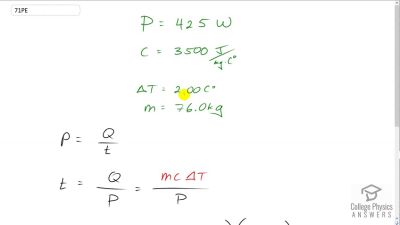 71PE
P = 425 W
C = 3500 J/kg·C°
ΔT = 2.00 C°
m = 76.0 kg
P = Q/t
t = Q/P = mcΔT/P
College Physics
ANSWERS